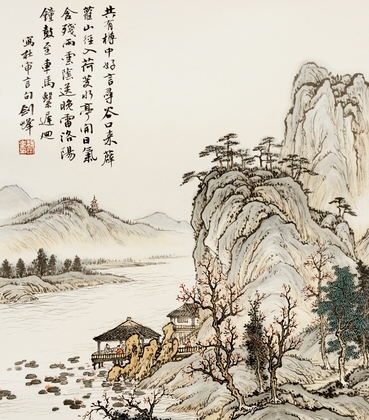 共有樽中好言尋谷口來薜
蘿山徑入荷芰水亭開日氣
含殘雨雲陰送晚雷洛陽
鐘鼓至車馬繫遲迴
寫杜審言句劍